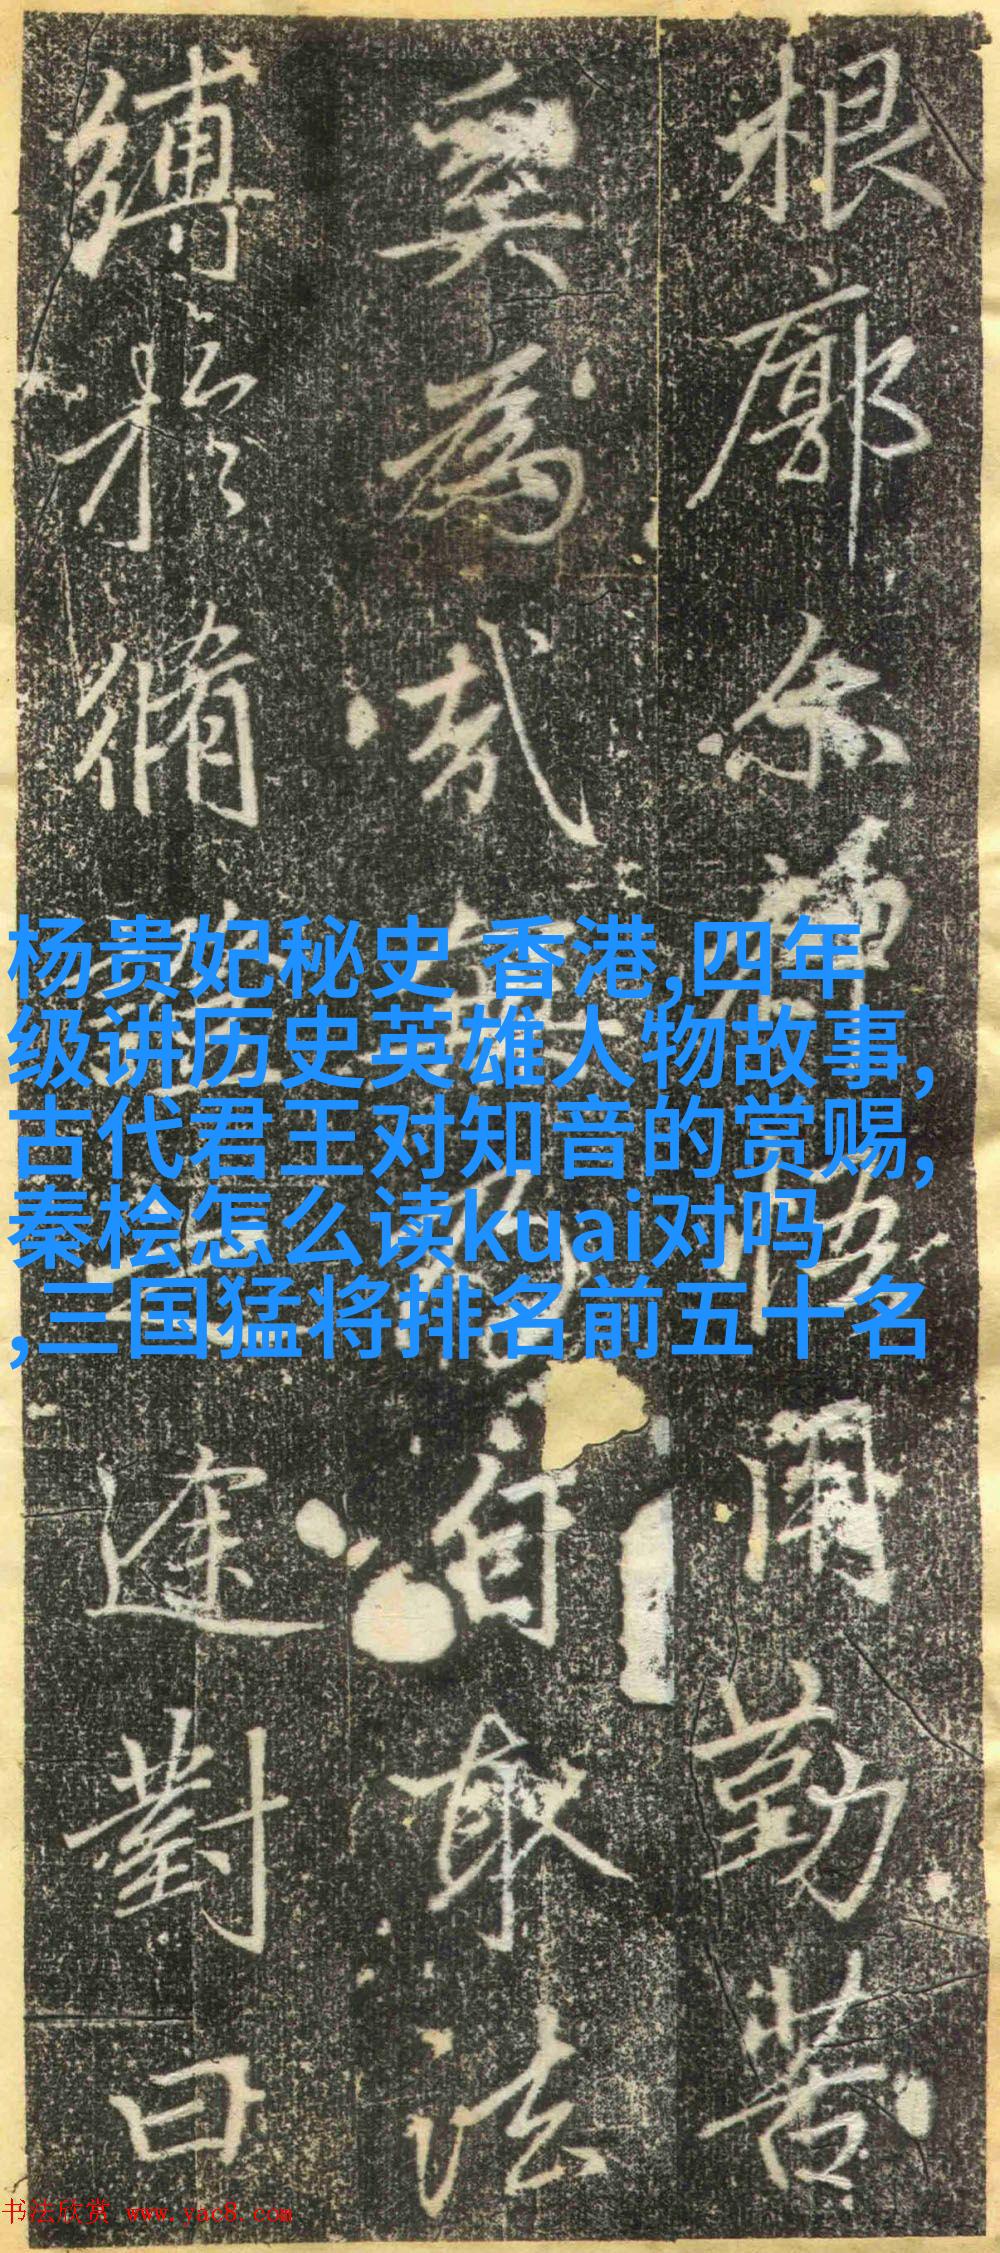 根廓爾禪悟用勤苦
奚為哉
自取法
縛於脩
途對曰
杨贵妃秘史 香港,四年
级讲历史英雄人物故事,
古代君王对知音的赏赐,
秦桧怎么读kuai对吗
,三国猛将排名前五十名
书法欣赏 www.yac8.com